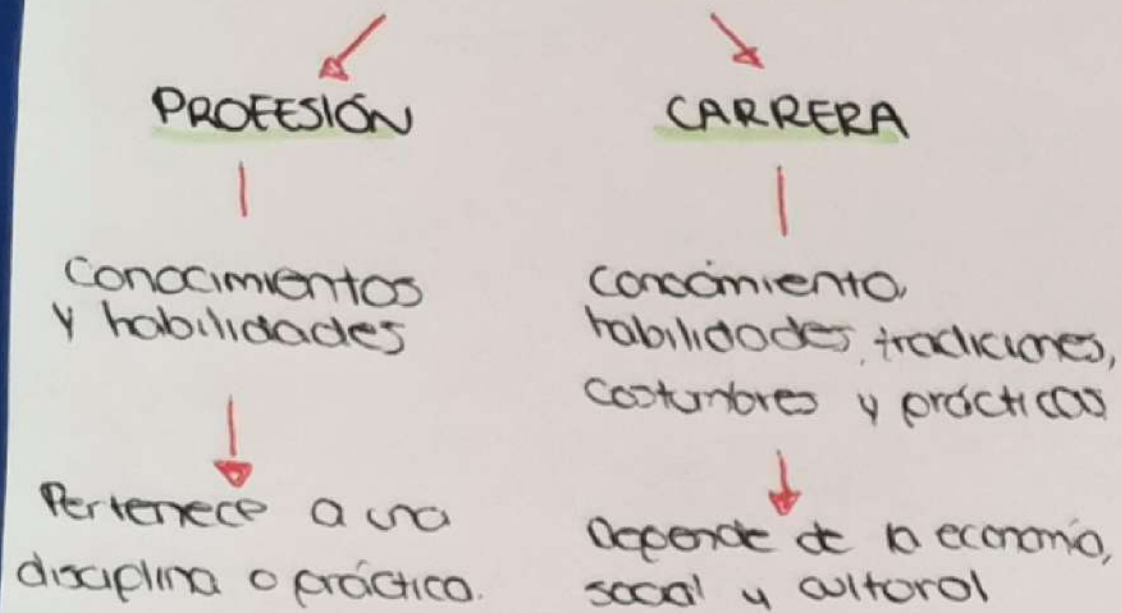 PROFESIÓN
Conocimientos
y habilidades
Pertenece a una
disciplina o práctica.
CARRERA
conocimiento,
habilidades, tradiciones,
costumbres y prácticas
Depende de la economía,
social y cultural